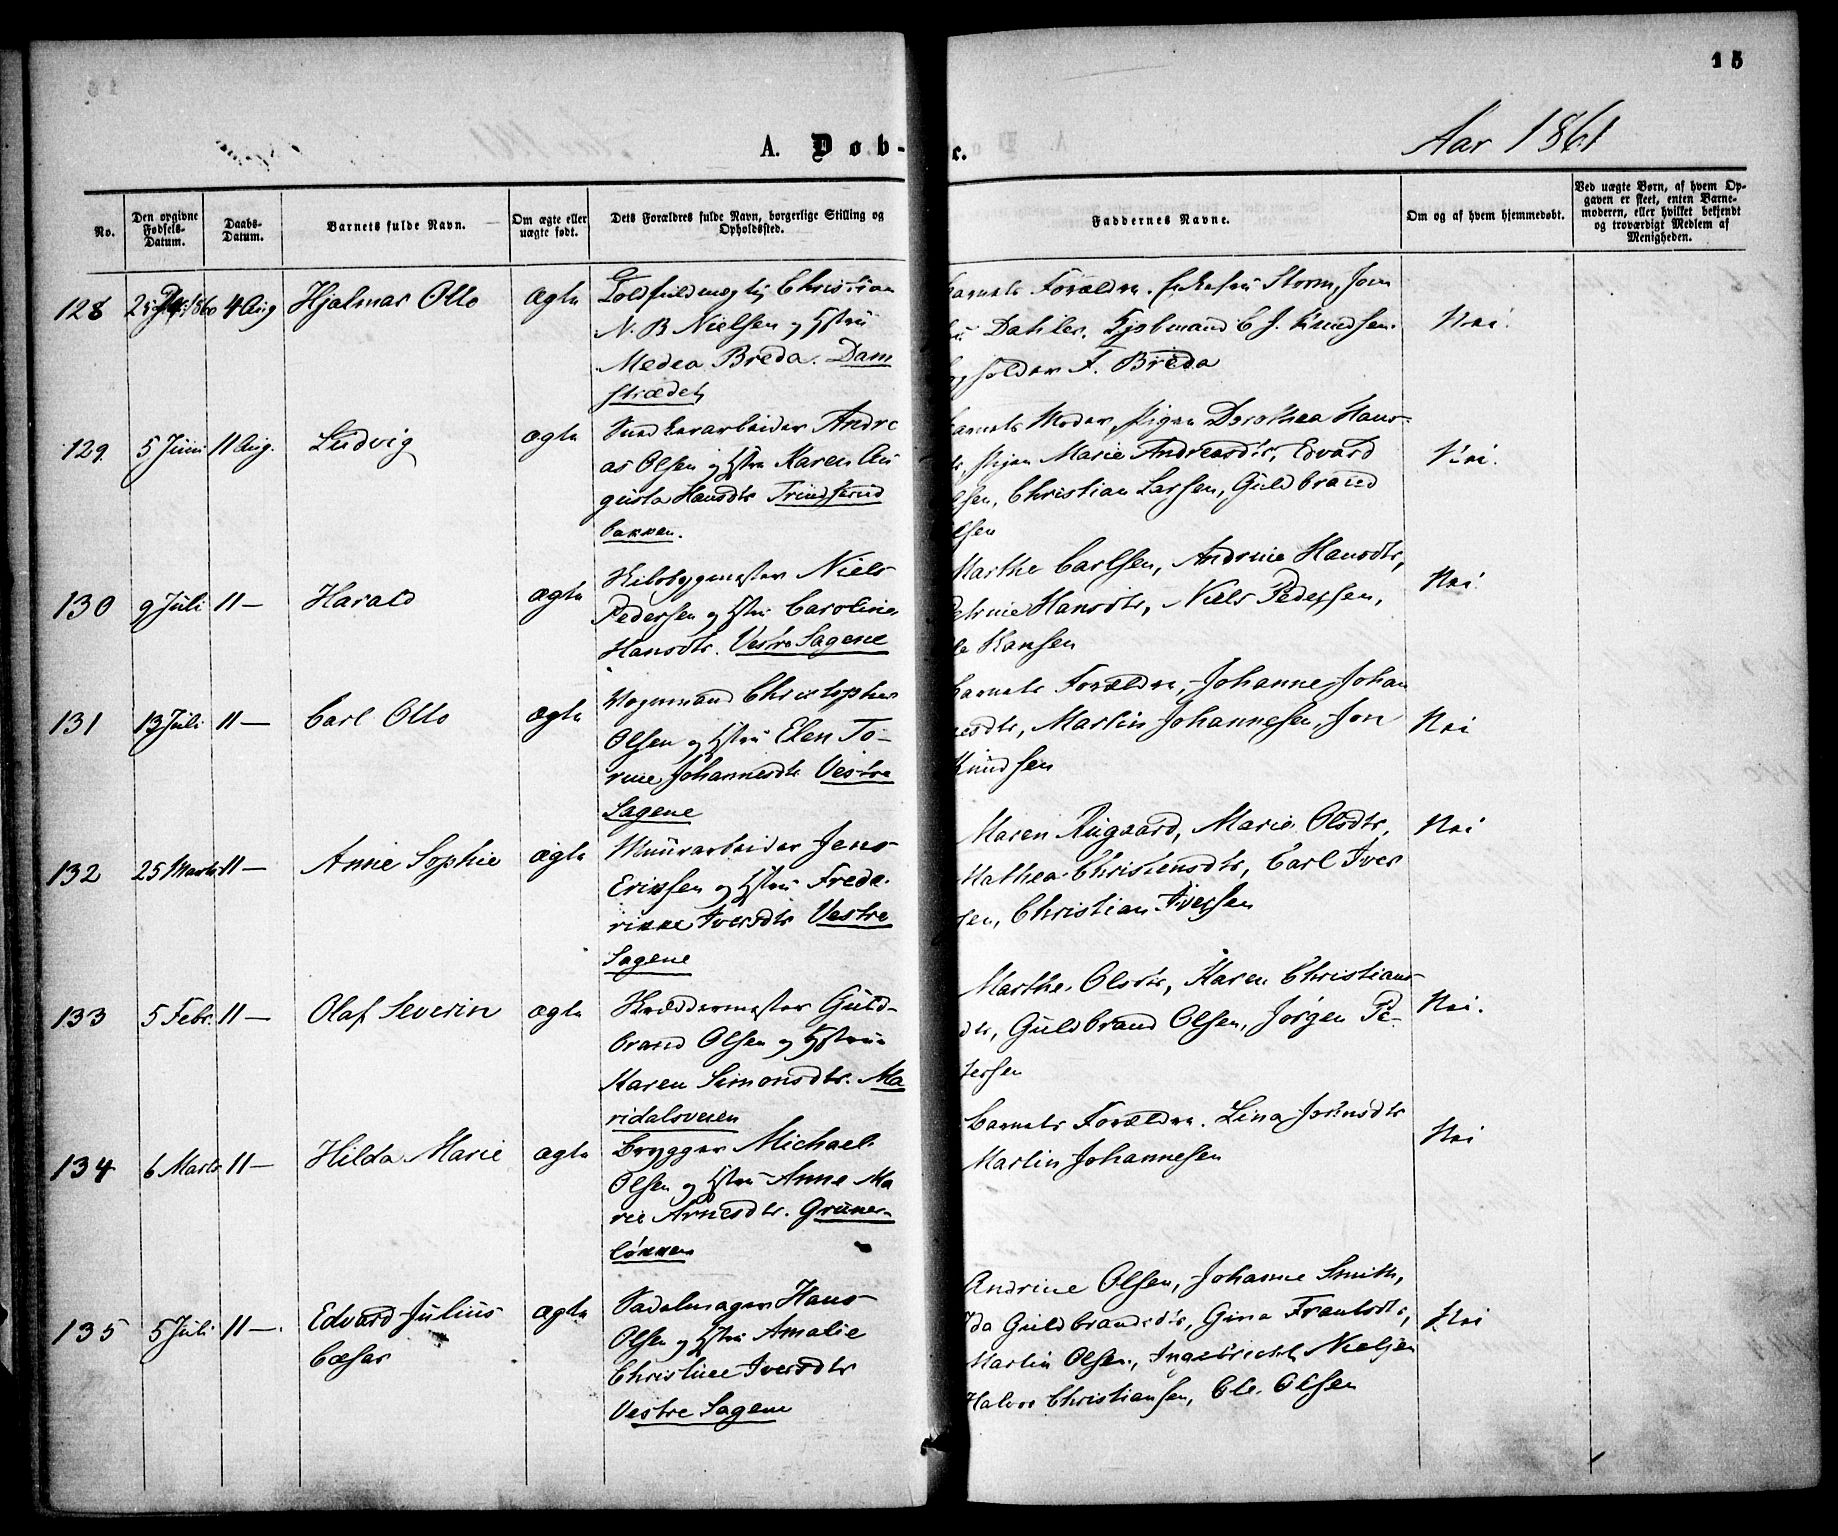 15
Aar 1861
A. Døb-
c.
No.
Den opgivne Fødsels-Datum.
Daabs-Datum.
Barnets fulde Navn.
Om ægte eller uægte født.
Dets Forældres fulde Navn, borgerlige Stilling og Opholdssted.
Faddernes Navne.
Om og af hvem hjemmedøbt.
Ved uægte Børn, af hvem Opgaven er skeet, enten Barnemoderen, eller hvilket bekjendt og troværdigt Medlem af Menigheden.
128 4 Aug Hjalmar Otto ægte
Toldfuldmægtig Christian
N. B Nielsen og Hstru
Medea Breda. Dam
strædet
Barnets Forældre. Storm, Jom
Dahler. Kjøbmand C J. Knudsen.
F. Breda
Nei.
129 5 Juni 11 Aug. Ludvig ægte
Snedkerarbeider Andre
as Olsen og Hstru Karen Au
gusta Hansdtr Trindserud
bakken.
Barnets Moder, Pigen Dorothea Hans-
Pigen Marie Andreasdtr, Edvard
lsen, Christian Larsen, Guldbrand
lsen
Nei.
130 9 Juli 11 — Harald ægte
Skibsbygmester Niels
Pedersen og Hstru Caroline
Hansdtr. Vestre Sagene
Marthe Carlsen, Andrine Hansdtr,
Petrine Hansdtr, Niels Pedersen,
le Hansen
Nei.
131 13 Juli 11 — Carl Otto ægte
Vognmand Christopher
Olsen og Hstru Elen To-
rine Johannesdtr Vestre
Sagene
Barnets Forældre, Johanne Johan
nesdtr, Martin Johannesen, Jon
Knudsen
Nei
132 25 Marts 11 — Anne Sophie ægte
Muurarbeider Jens
Eriksen og Hstru Frede.
rikke Iversdtr Vestre
Sagene
Maren Rugaard, Marie Olsdtr,
Mathea Christensdtr, Carl Iver
sen, Christian Iversen
Nei
133 5 Febr. 11 — Olaf Severin ægte
Skræddermester Guld-
brand Olsen og Hstru
Karen Simonsdtr. Ma
ridalsveien
Marthe Olsdtr, Karen Christians
dtr, Guldbrand Olsen, Jørgen Pe-
tersen
Nei.
134 6 Marts 11 — Hilda Marie ægte
Brygger Michael
Olsen og Hstru Anne Ma
rie Arnesdtr. Grüner-
løkken
Barnets Forældre. Lina Johnsdtr
Martin Johannesen
Nei
135 5 Juli 11 —. Edvard Julius ægte
Cæsar
Sadelmager Hans
Olsen og Hstru Amalie
Christine Iversdtr
Vestre Sagene
Andrine Olsen, Johanne Smith,
Ida Guldbrandsdtr, Gina Frantsdtr,
Martin Olsen, Ingebricht Nielsen
Halvor Christiansen, Ole Olsen
Nei